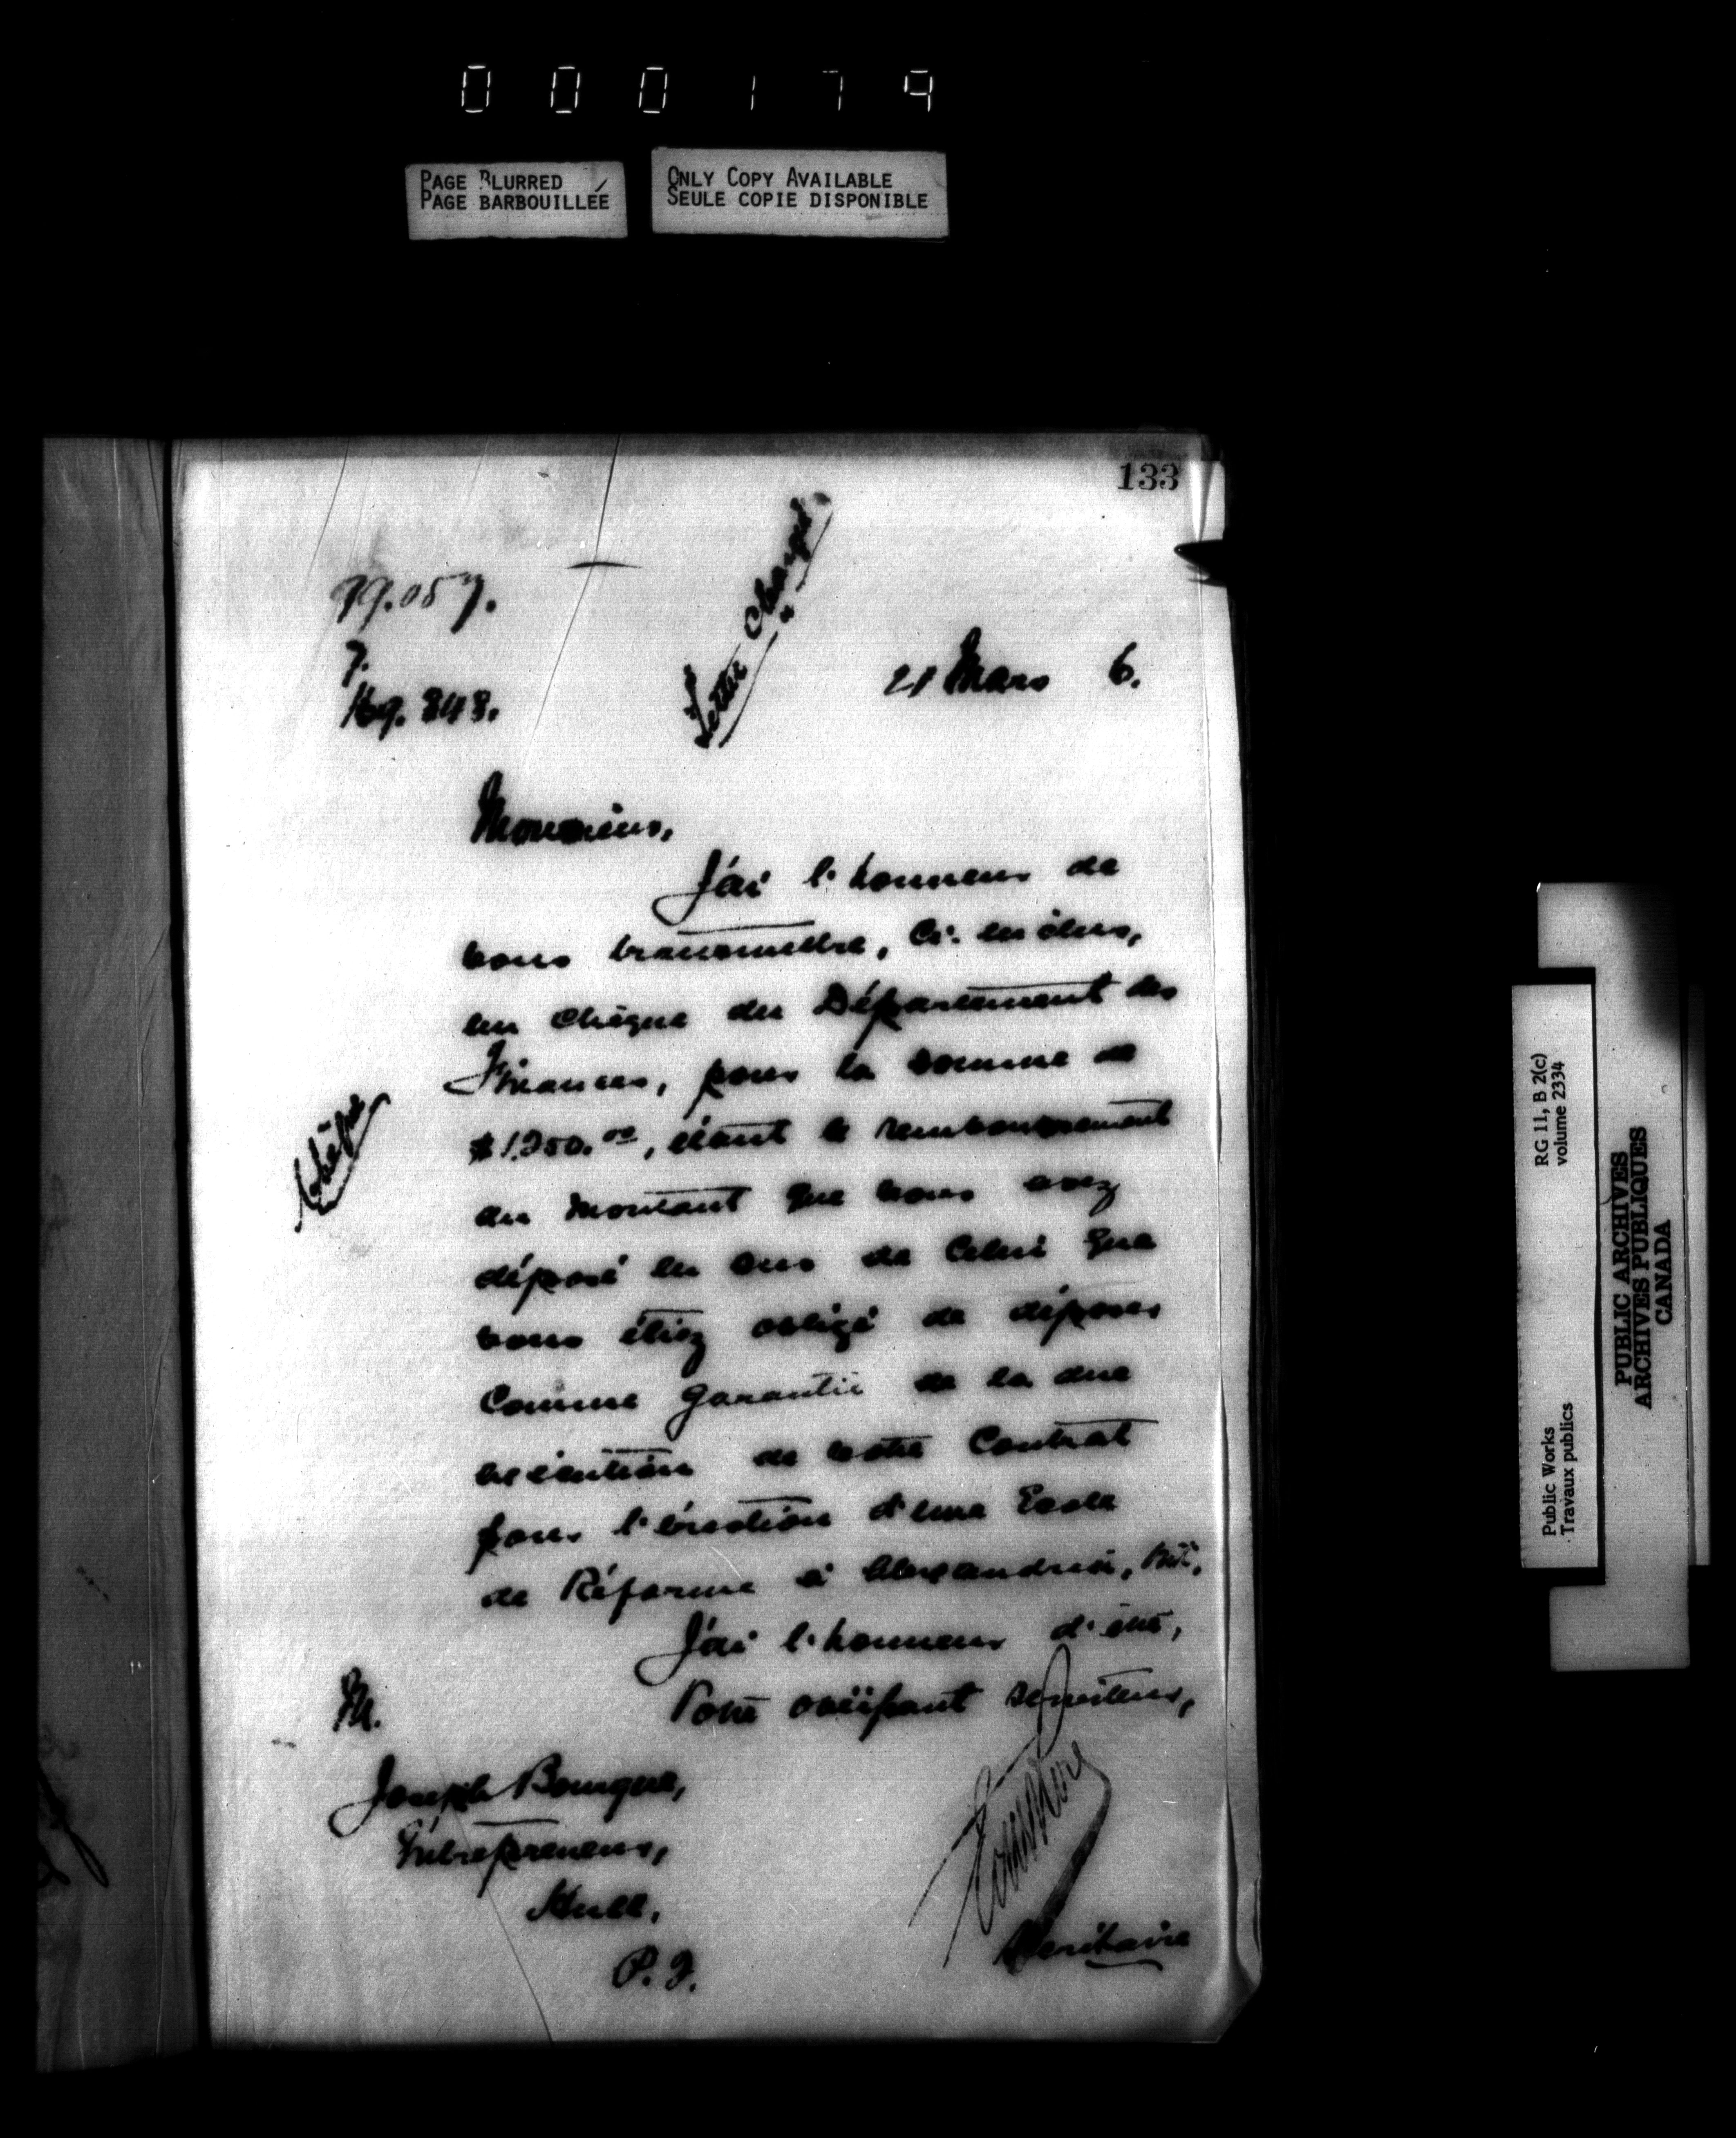 000179
PAGE BLURRED
PAGE BARBOUILLÉE
ONLY COPY AVAILABLE
SEULE COPIE DISPONIBLE
133
79.057.
7.
843.
Letter Changed
21 Mars 6.
Monsieur,
J'ai l'honneur de
vous transmettre, Ci-inclus,
un Chèque du Département des
Finances, pour la somme de
$1250.00, étant le remboursement
du montant que vous avez
déposé en sus de Celui que
vous étiez obligé de déposer
Comme garantie de la due
exécution de votre Contrat
pour l'érection d'une Ecole
de Réforme à Alexandria, Ont.
Chèque
J'ai l'honneur d'être,
Votre obéissant serviteur,
M.
Joseph Bourque,
Entrepreneur,
Hull,
P. Q.
Secrétaire
RG 11, B 2(c)
volume 2334
Public Works
Travaux publics
PUBLIC ARCHIVES
ARCHIVES PUBLIQUES
CANADA